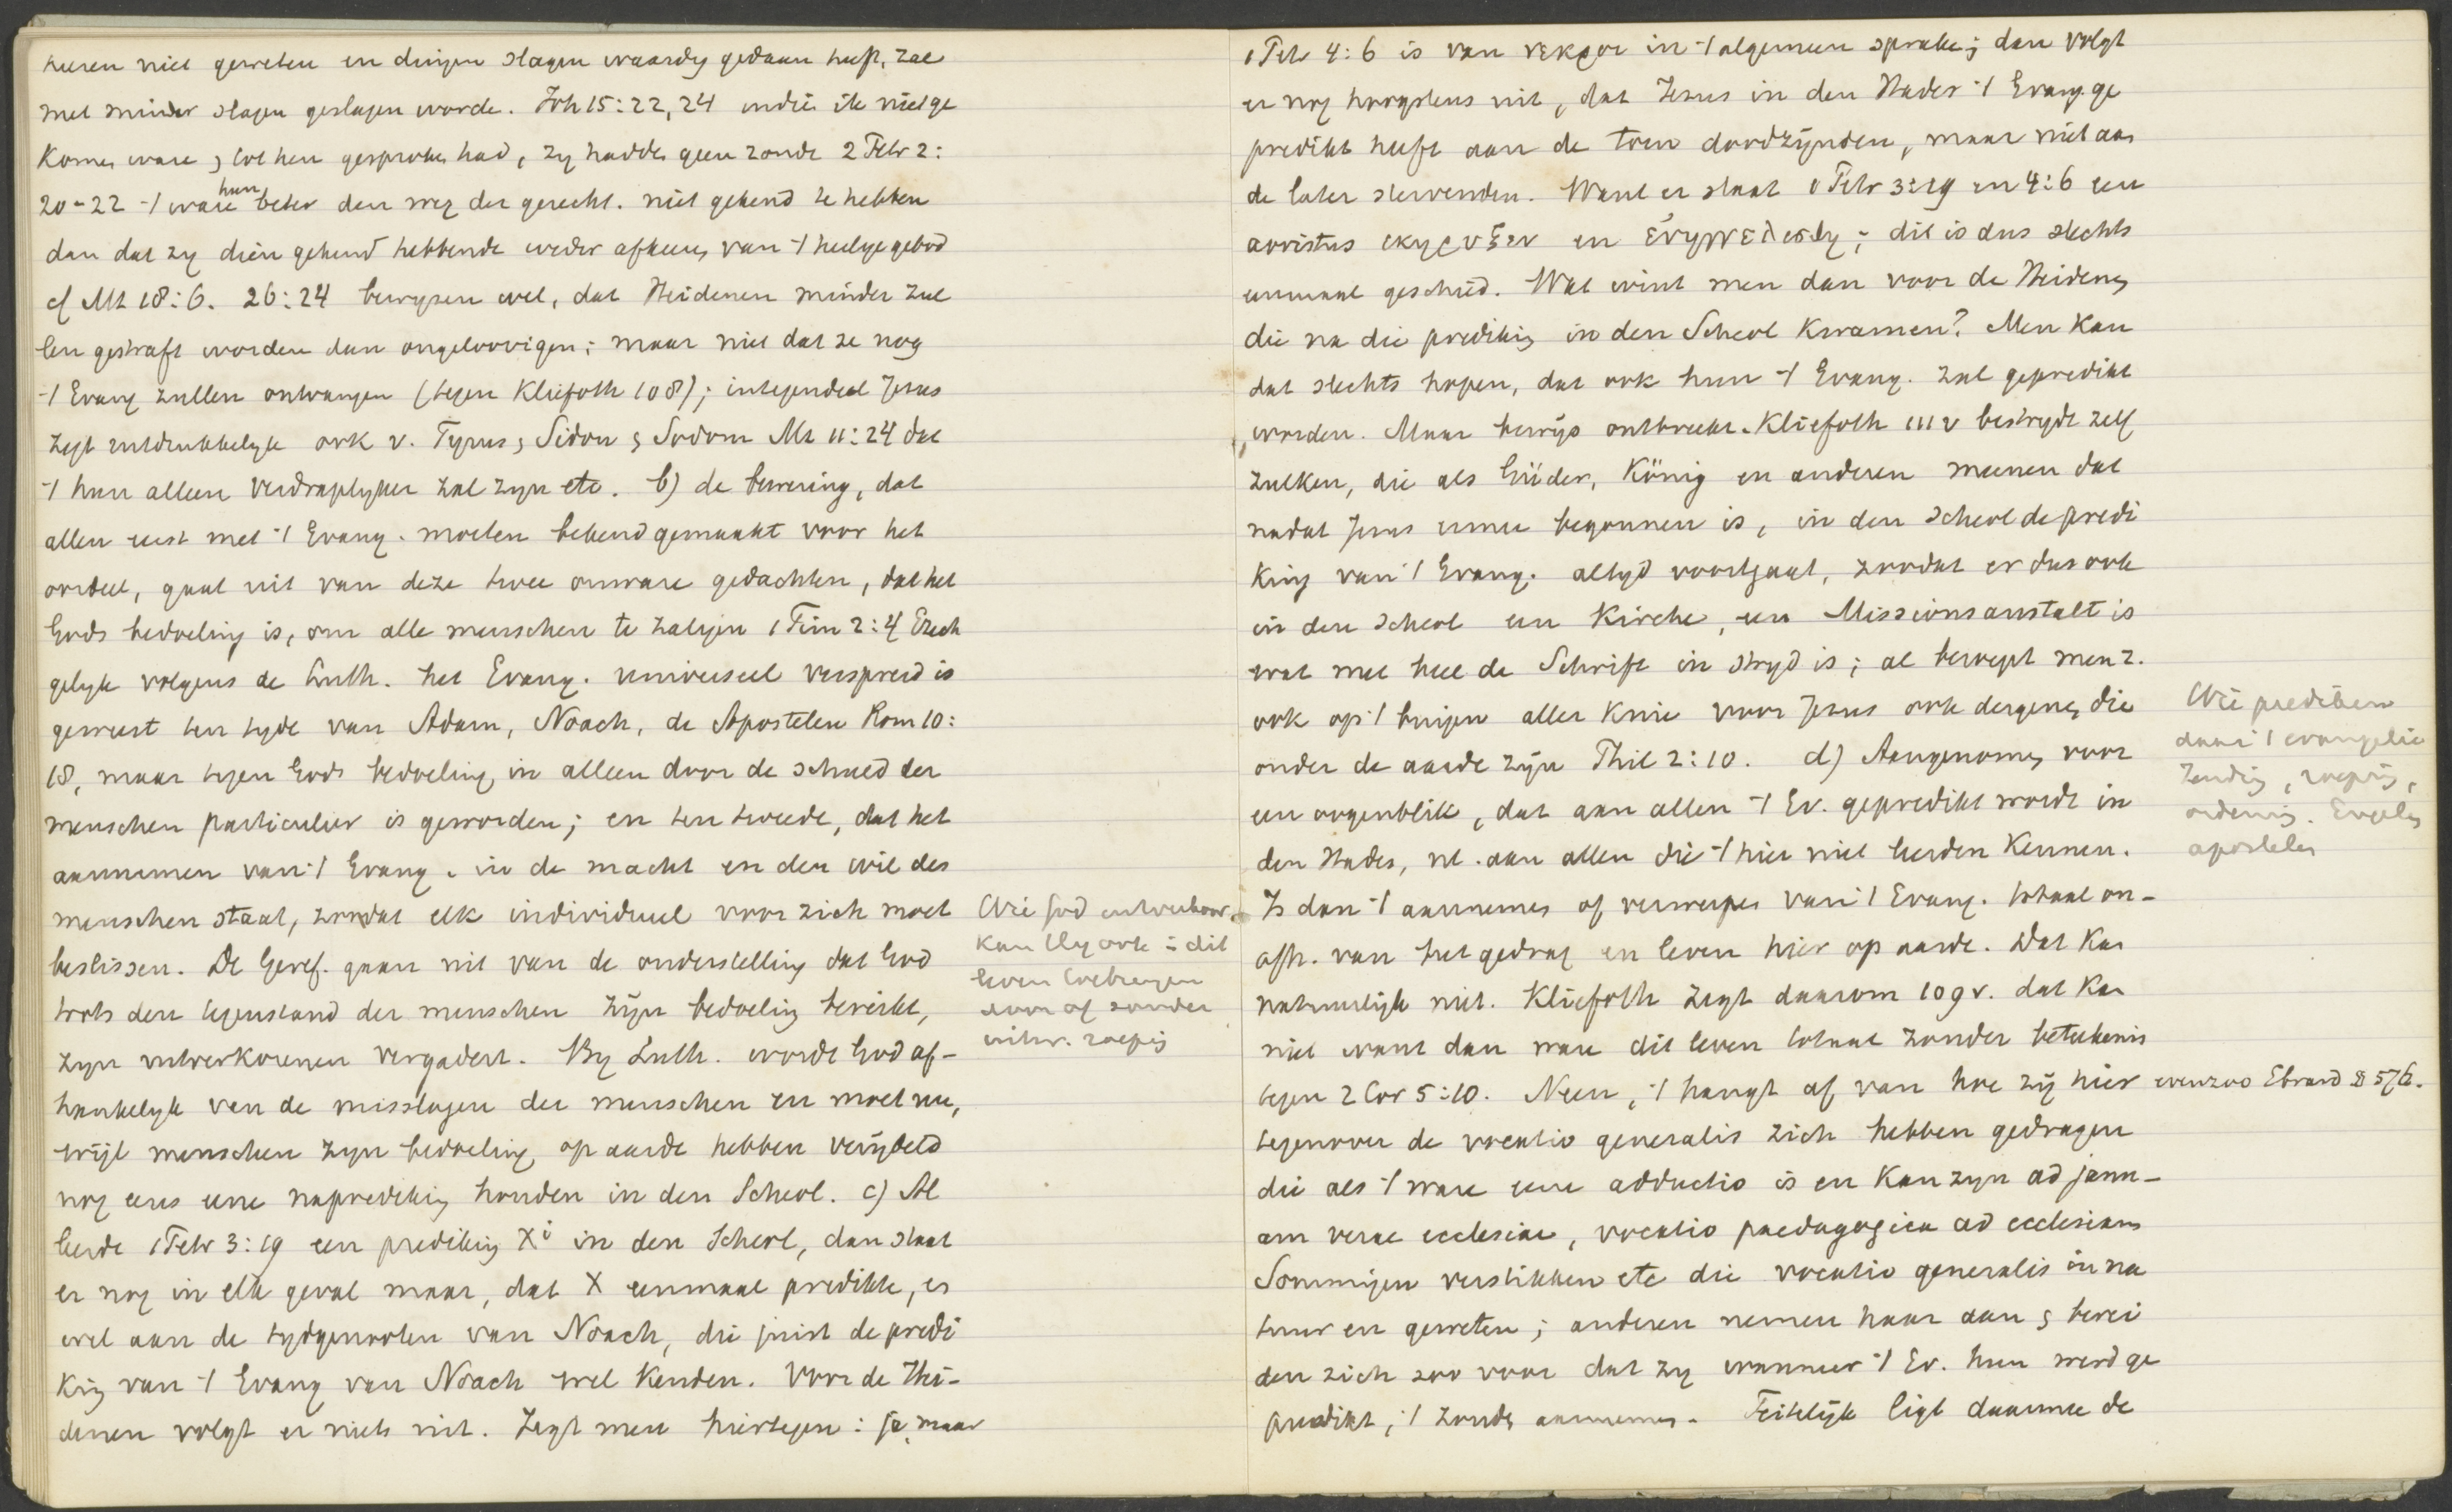 heeren niet geweten en dingen slagen waardig gedaan heeft, zal
met minder slagen geslagen worde. Joh 15:22, 24 indien ik niet ge
komen ware, tot hen gesproken had, zy hadden geen zonde 2 Petr 2:
20-22 't ware hun beter den weg der gerecht. niet gekend te hebben
dan dat zy dien gekend hebbende weder afkeeren van 't heilige gebod
cf Mt 18:6. 26:24 bewyzen wel, dat Heidenen minder zul
len gestraft worden dan ongeloovigen; maar niet dat ze nog
't Evang zullen ontvangen (tegen Kliefoth 108); integendeel Jezus
zegt uitdrukkelyk ook v. Tyrus, Sidon, Sodom Mt 11:24 dat
't hun alleen verdraaglyker zal zyn etc. b) de bewering, dat
allen eerst met 't Evang. moeten bekend gemaakt voor het
oordeel, gaat uit van deze twee onware gedachten, dat het
Gods bedoeling is, om alle menschen te zaligen 1 Tim 2:4 Ezech
gelyk volgens de Luth. het Evang. universeel verspreid is
geweest ten tyde van Adam, Noach, de Apostelen Rom 10:
18, maar tegen Gods bedoeling in alleen door de schuld der
menschen particulier is geworden; en ten tweede, dat het
aannemen van 't Evang. in de macht en den wil des
menschen staat, zoodat elk individueel voor zich moet
beslissen. De Geref. gaan uit van de onderstelling dat God
trots den tegenstand der menschen zyn bedoeling bereikt,
zyn uitverkorenen vergadert. By Luth. wordt God af-
hankelyk van de misslagen der menschen en moet nu,
wijl menschen zyn bedoeling op aarde hebben verijdeld
nog eens eene naprediking houden in den Scheol. c) Al
leerde 1 Petr 3:19 een prediking Xi in den Scheol, dan staat
er nog in elk geval maar, dat X eenmaal predikte, en
wel aan de tydgenooten van Noach, die juist de predi
king van 't Evang van Noach wel kenden. Voor de Hei-
denen volgt er niets uit. Zegt men hiertegen: ja, maar
Wie God uitverkoor,
kan Hy ook in dit
leven toebrengen
door of zonder
uitw. roeping
1 Petr 4:6 is van νεκροι in 't algemeen sprake; dan volgt
er nog hoogstens uit, dat Jezus in den Hades 't Evang. ge
predikt heeft aan de toen doodzijnden, maar niet aan
de later stervenden. Want er staat 1 Petr 3:19 en 4:6 een
aoristus εκηρυξεν en ευηγγελισθη; dit is dus slechts
eenmaal geschied. Wat wint men dan voor de Heidenen
die na die prediking in den Scheol kwamen? Men kan
dat slechts hopen, dat ook hun 't Evang. zal gepredikt
worden. Maar bewijs ontbreekt. Kliefoth 111 v bestrydt zelf
zulken, die als Güder, König en anderen meenen dat
nadat Jezus ermee begonnen is, in den Scheol de predi
king van 't Evang. altyd voortgaat, zoodat er dus ook
in den Scheol een Kirche, een Missionsanstalt is
wat met heel de Schrift in stryd is; al beroept men z.
ook op 't buigen aller knie voor Jezus ook dergenen die
onder de aarde zijn Phil 2:10. d) Aangenomen voor
een oogenblik, dat aan allen 't Ev. gepredikt wordt in
den Hades, nl. aan allen die 't hier niet leerden kennen.
Is dan 't aannemen of verwerpen van 't Evang. totaal on-
afh. van het gedrag en leven hier op aarde. Dat kan
natuurlijk niet. Kliefoth zegt daarom 109 v. dat kan
niet want dan ware dit leven totaal zonder beteekenis
tegen 2 Cor 5:10. Neen, 't hangt af van hoe zij hier
tegenover de vocatio generalis zich hebben gedragen
die als 't ware eene adductio is en kan zyn ad janu-
am verae ecclesiae, vocatio paedagogica ad ecclesiam
Sommigen verstikken etc die vocatio generalis in na
tuur en geweten; anderen nemen haar aan, berei
den zich zoo voor dat zy wanneer 't Ev. hun werd ge
predikt, 't zouden aannemen. Feitelijk ligt daarmee de
Wie prediken
daar 't evangelie
Zending, roeping,
ordening. Engelen
apostelen
evenzoo Ebrard § 576.